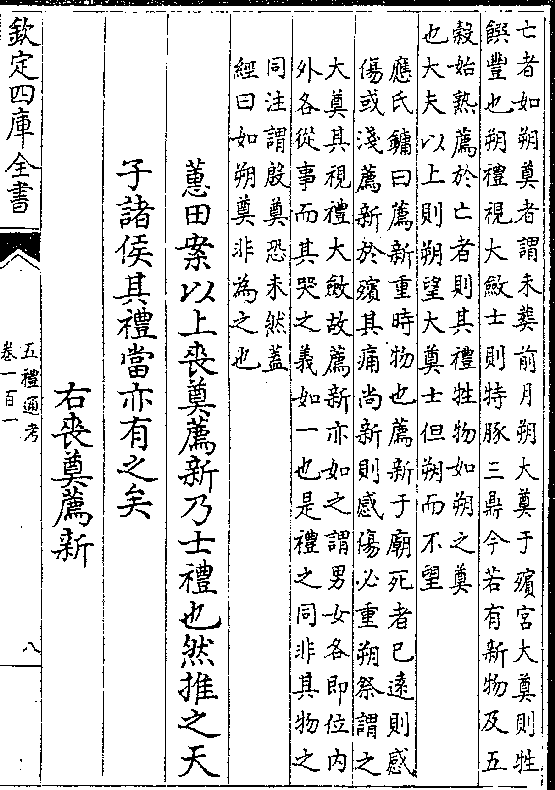 亡者如朔奠者謂未葬前月朔大奠于殯宮大奠則牲
饌豐也朔禮視大斂士則特豚三鼎今若有新物及五
榖始熟薦於亡者則其禮牲物如朔之奠
也大夫以上則朔望大奠士但朔而不望
應氏鏞曰薦新重時物也薦新于廟死者已遠則感
傷或淺薦新於殯其痛尚新則感傷必重朔祭謂之
大奠其視禮大斂故薦新亦如之謂男女各即位内
外各從事而其哭之義如一也是禮之同非其物之
同注謂殷奠恐未然蓋
經曰如朔奠非為之也
蕙田案以上喪奠薦新乃士禮也然推之天
子諸侯其禮當亦有之矣
右喪奠薦新
欽定四庫全書
五禮通考
卷一百一
八